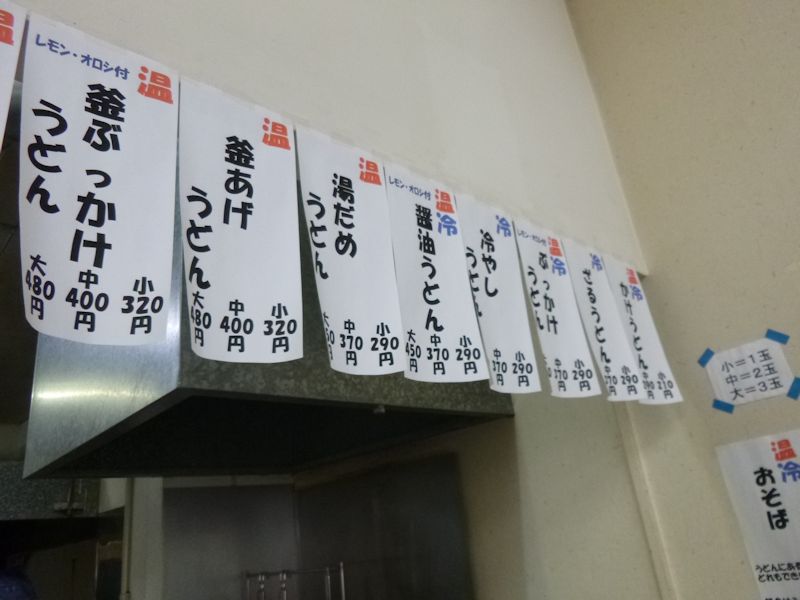 温
レモン・オロシ付
温
釜ぶっかけ
うどん
小320円
中400円
大480円
温
釜あげ
うどん
小320円
中400円
大480円
温
湯だめ
うどん
小290円
中370円
レモン・オロシ付
温
冷
醤油うどん
小290円
中370円
大450円
冷
冷やし
うどん
小290円
中370円
レモン・オロシ付
温
冷
ぶっかけ
うどん
小290円
中370円
冷
ざるうどん
小290円
中370円
温
冷
かけうどん
小210円
中290円
小=1玉
中=2玉
大=3玉
温
冷
おそば
うどんにあ
どれもでき